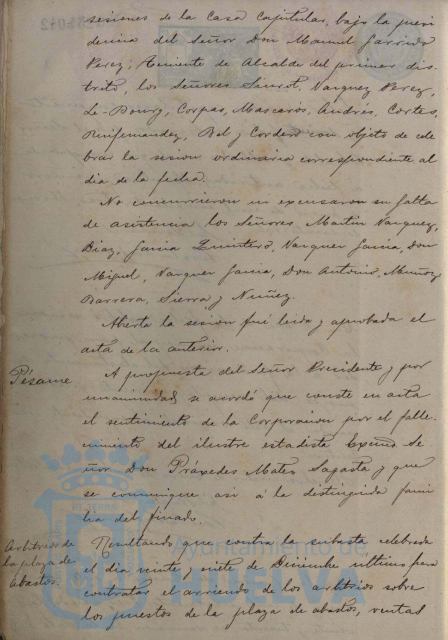 sesiones de la Casa Capitular, bajo la presi
dencia del Señor Don Manuel Garrido
Perez, Teniente de Alcalde del primer dis-
trito, los Señores Siurot, Vazquez Perez,
Le-Bourg, Corpas, Mascarós, Andrés, Cortes,
Ruifernandez, Bel y Cordero con objeto de cele
brar la sesion ordinaria correspondiente al
dia de la fecha.
No concurrieron ni excusaron su falta
de asistencia los Señores Martin Vazquez,
Diaz, Garcia Quintero, Vazquez Garcia, Don
Miguel, Vazquez Garcia, Don Antonio, Muñoz
Barrera, Sierra y Nuñez.
Abierta la sesion fué leida y aprobada el
acta de la anterior.
Pésame
A propuesta del Señor Presidente y por
unanimidad se acordó que conste en acta
el sentimiento de la Corporacion por el falle-
cimiento del ilustre estadista Excmo Se
ñor Don Práxedes Mateo Sagasta y que
se comunique asi á la distinguida fami
lia del finado.
Arbitrios de
la plaza de
Abastos.
Resultando que contra la subasta celebrada
el dia veinte y siete de Diciembre último para
contratar el arriendo de los arbitrios sobre
los puestos de la plaza de abastos, ventas
Ayuntamiento de
HUELVA